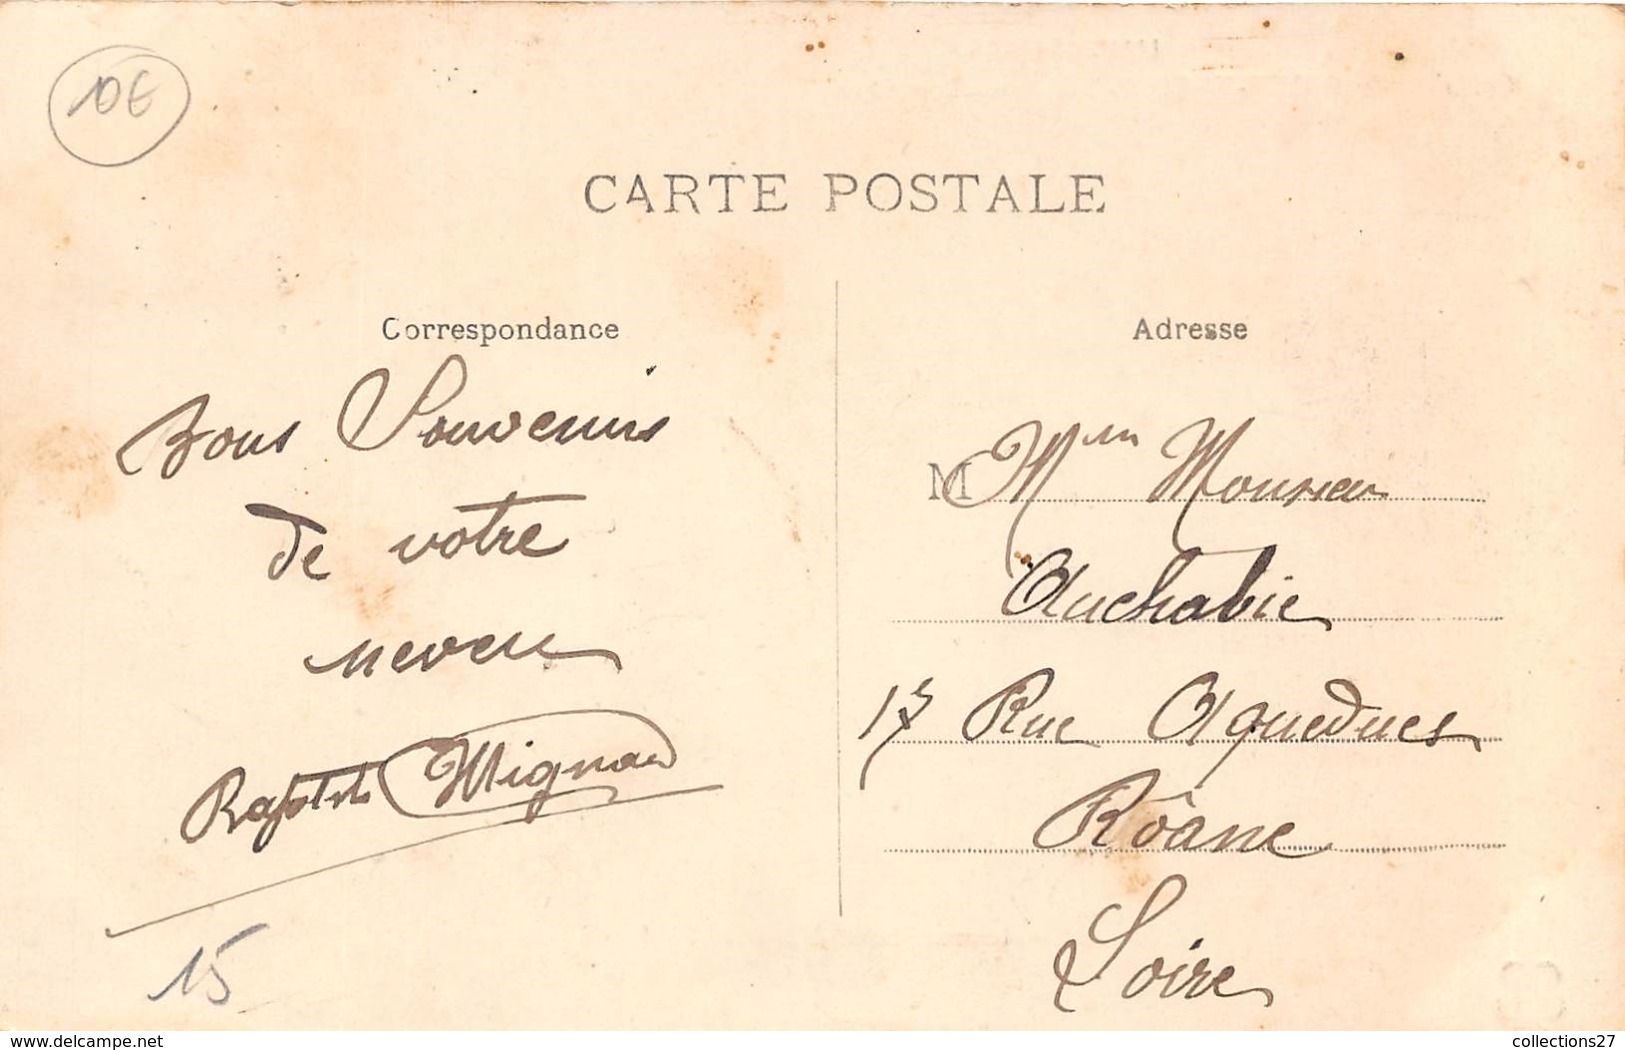 10€
CARTE POSTALE
Correspondance
Bons Souvenirs
de votre
neveu
Baptiste Mignard
15
Adresse
M Mme Monsieur
Auchabie
Rue Aqueducs
Rôane
Loire
delcampe.net
collections27